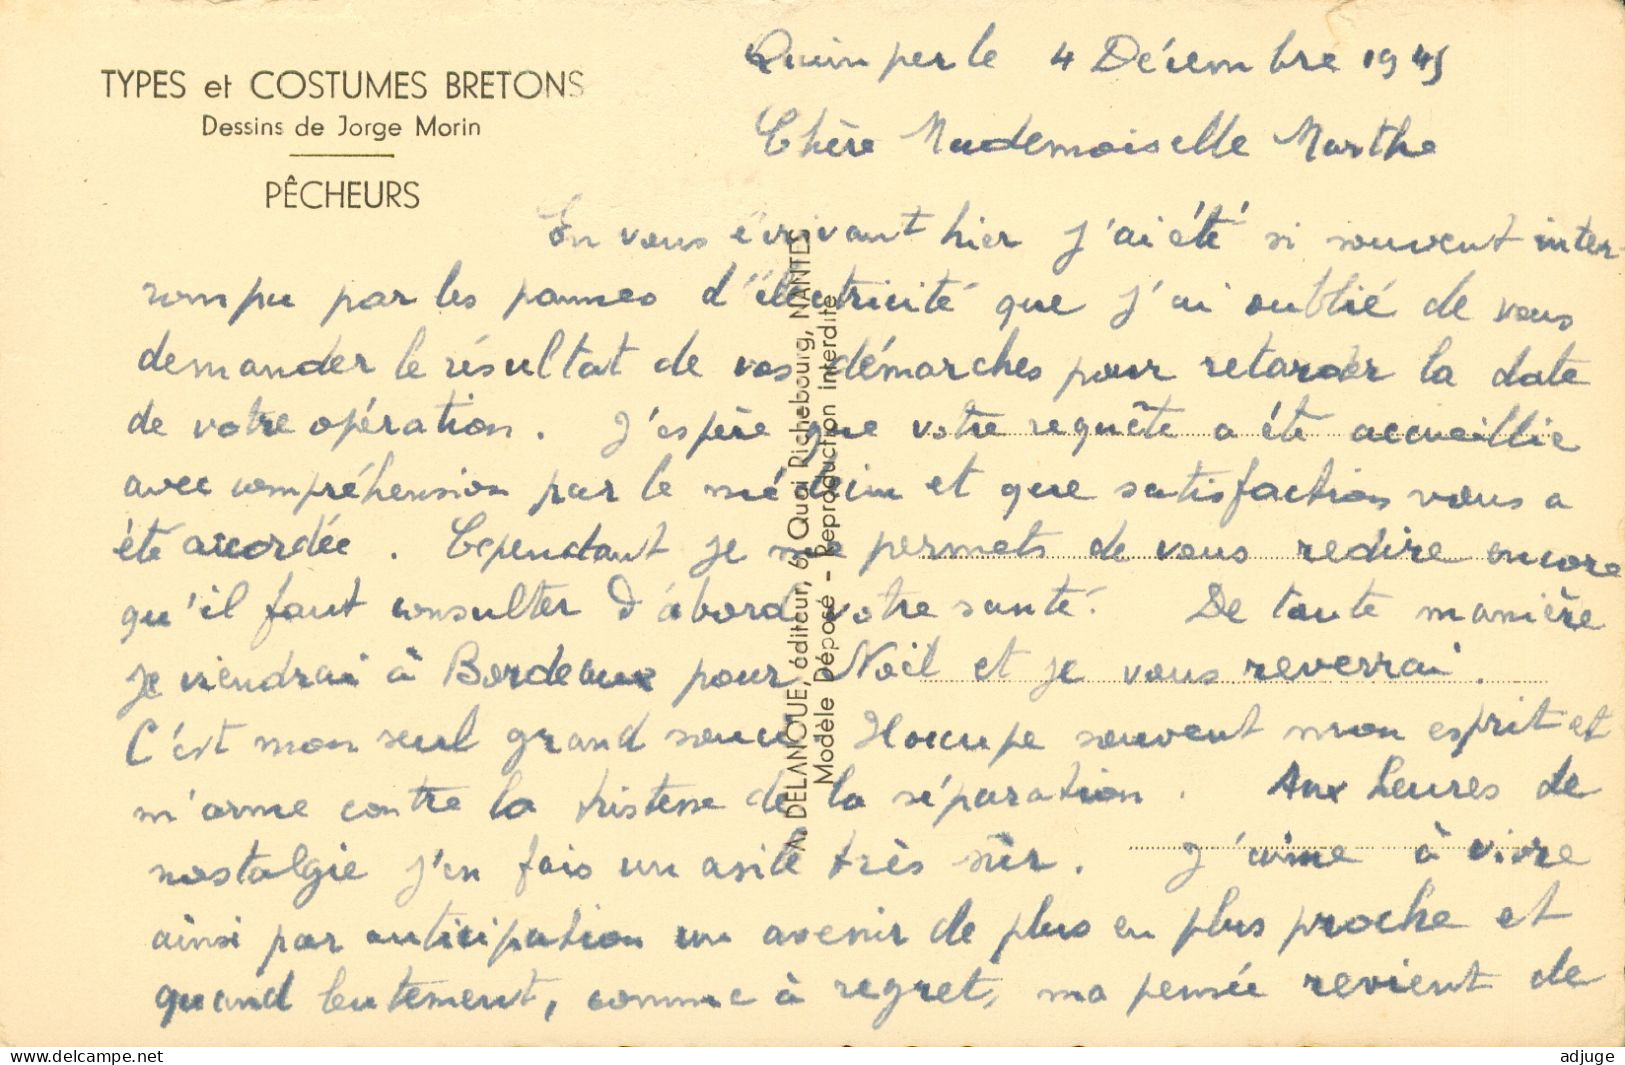 TYPES et COSTUMES BRETONS
Dessins de Jorge Morin
PÊCHEURS
Quimperle 4 Décembre 1945
Chère Mademoiselle Marthe
En vous écrivant hier j'ai été si souvent inter-
rompu par les pannes d'électricité que j'ai oublié de vous
demander le résultat de vos démarches pour retarder la date
de votre opération. J'espère que votre requête a été accueillie
avec compréhension par le médecin et que satisfaction vous a
été accordée. Cependant je me permets de vous redire encore
qu'il faut consulter d'abord votre santé. De toute manière
je viendrai à Bordeaux pour Noël et je vous reverrai.
C'est mon seul grand souci. Il occupe souvent mon esprit et
m'arme contre la tristesse de la séparation. Aux heures de
nostalgie j'en fais un asile très sûr. J'aime à vivre
ainsi par anticipation un avenir de plus en plus proche et
quand lentement, comme à regret, ma pensée revient de
A. DELANOUE, éditeur, 6, Quai Richebourg, NANTES
Modèle Déposé - Reproduction interdite
https://www.delcampe.net
adjuge